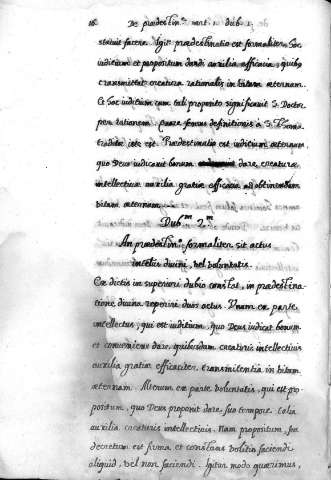 16 De prædestin.e art. 1. dub. 2.
statuit facere. Ergo prædestinatio est formaliter hoc
iuditium et propositum dandi auxilia efficacia, quibus
transmittat creatura rationalis in vitam æternam.
Et hoc iuditium cum tali proposito significavit S. Doctor
per rationem. quare sensus definitionis a S. Thoma
traditæ iste est. Prædestinatio est iuditium æternum,
quo Deus iudicavit bonum dare, creaturæ
intellectivæ auxilia gratiæ efficacia ad obtinendam
vitam æternam.
Dub.m 2.m
An prædestin.o formaliter sit actus
intellus divini, vel voluntatis.
Ex dictis in superiori dubio constat, in prædestina-
tione divina reperiri duos actus. Unam ex parte
intellectus, qui est iuditium, quo Deus iudicat bonum
et conveniens dare quibusdam creaturis intellectivis
auxilia gratiæ efficaciter transmitentia in vitam
æternam. Alterum ex parte voluntatis, qui est pro-
positum, quo Deus proponit dare, suo tempore talia
auxilia creaturis intellectivis. Nam propositum, seu
decretum est firma et constans volitio faciendi
aliquid, vel non faciendi. Igitur modo quærimus,